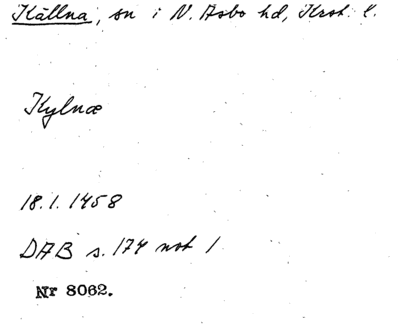 Källna, sn i N. Åsbo hd, Krist. l.
Kylnæ
18.1.1458
DAB s. 174 not 1
Nr 8062.